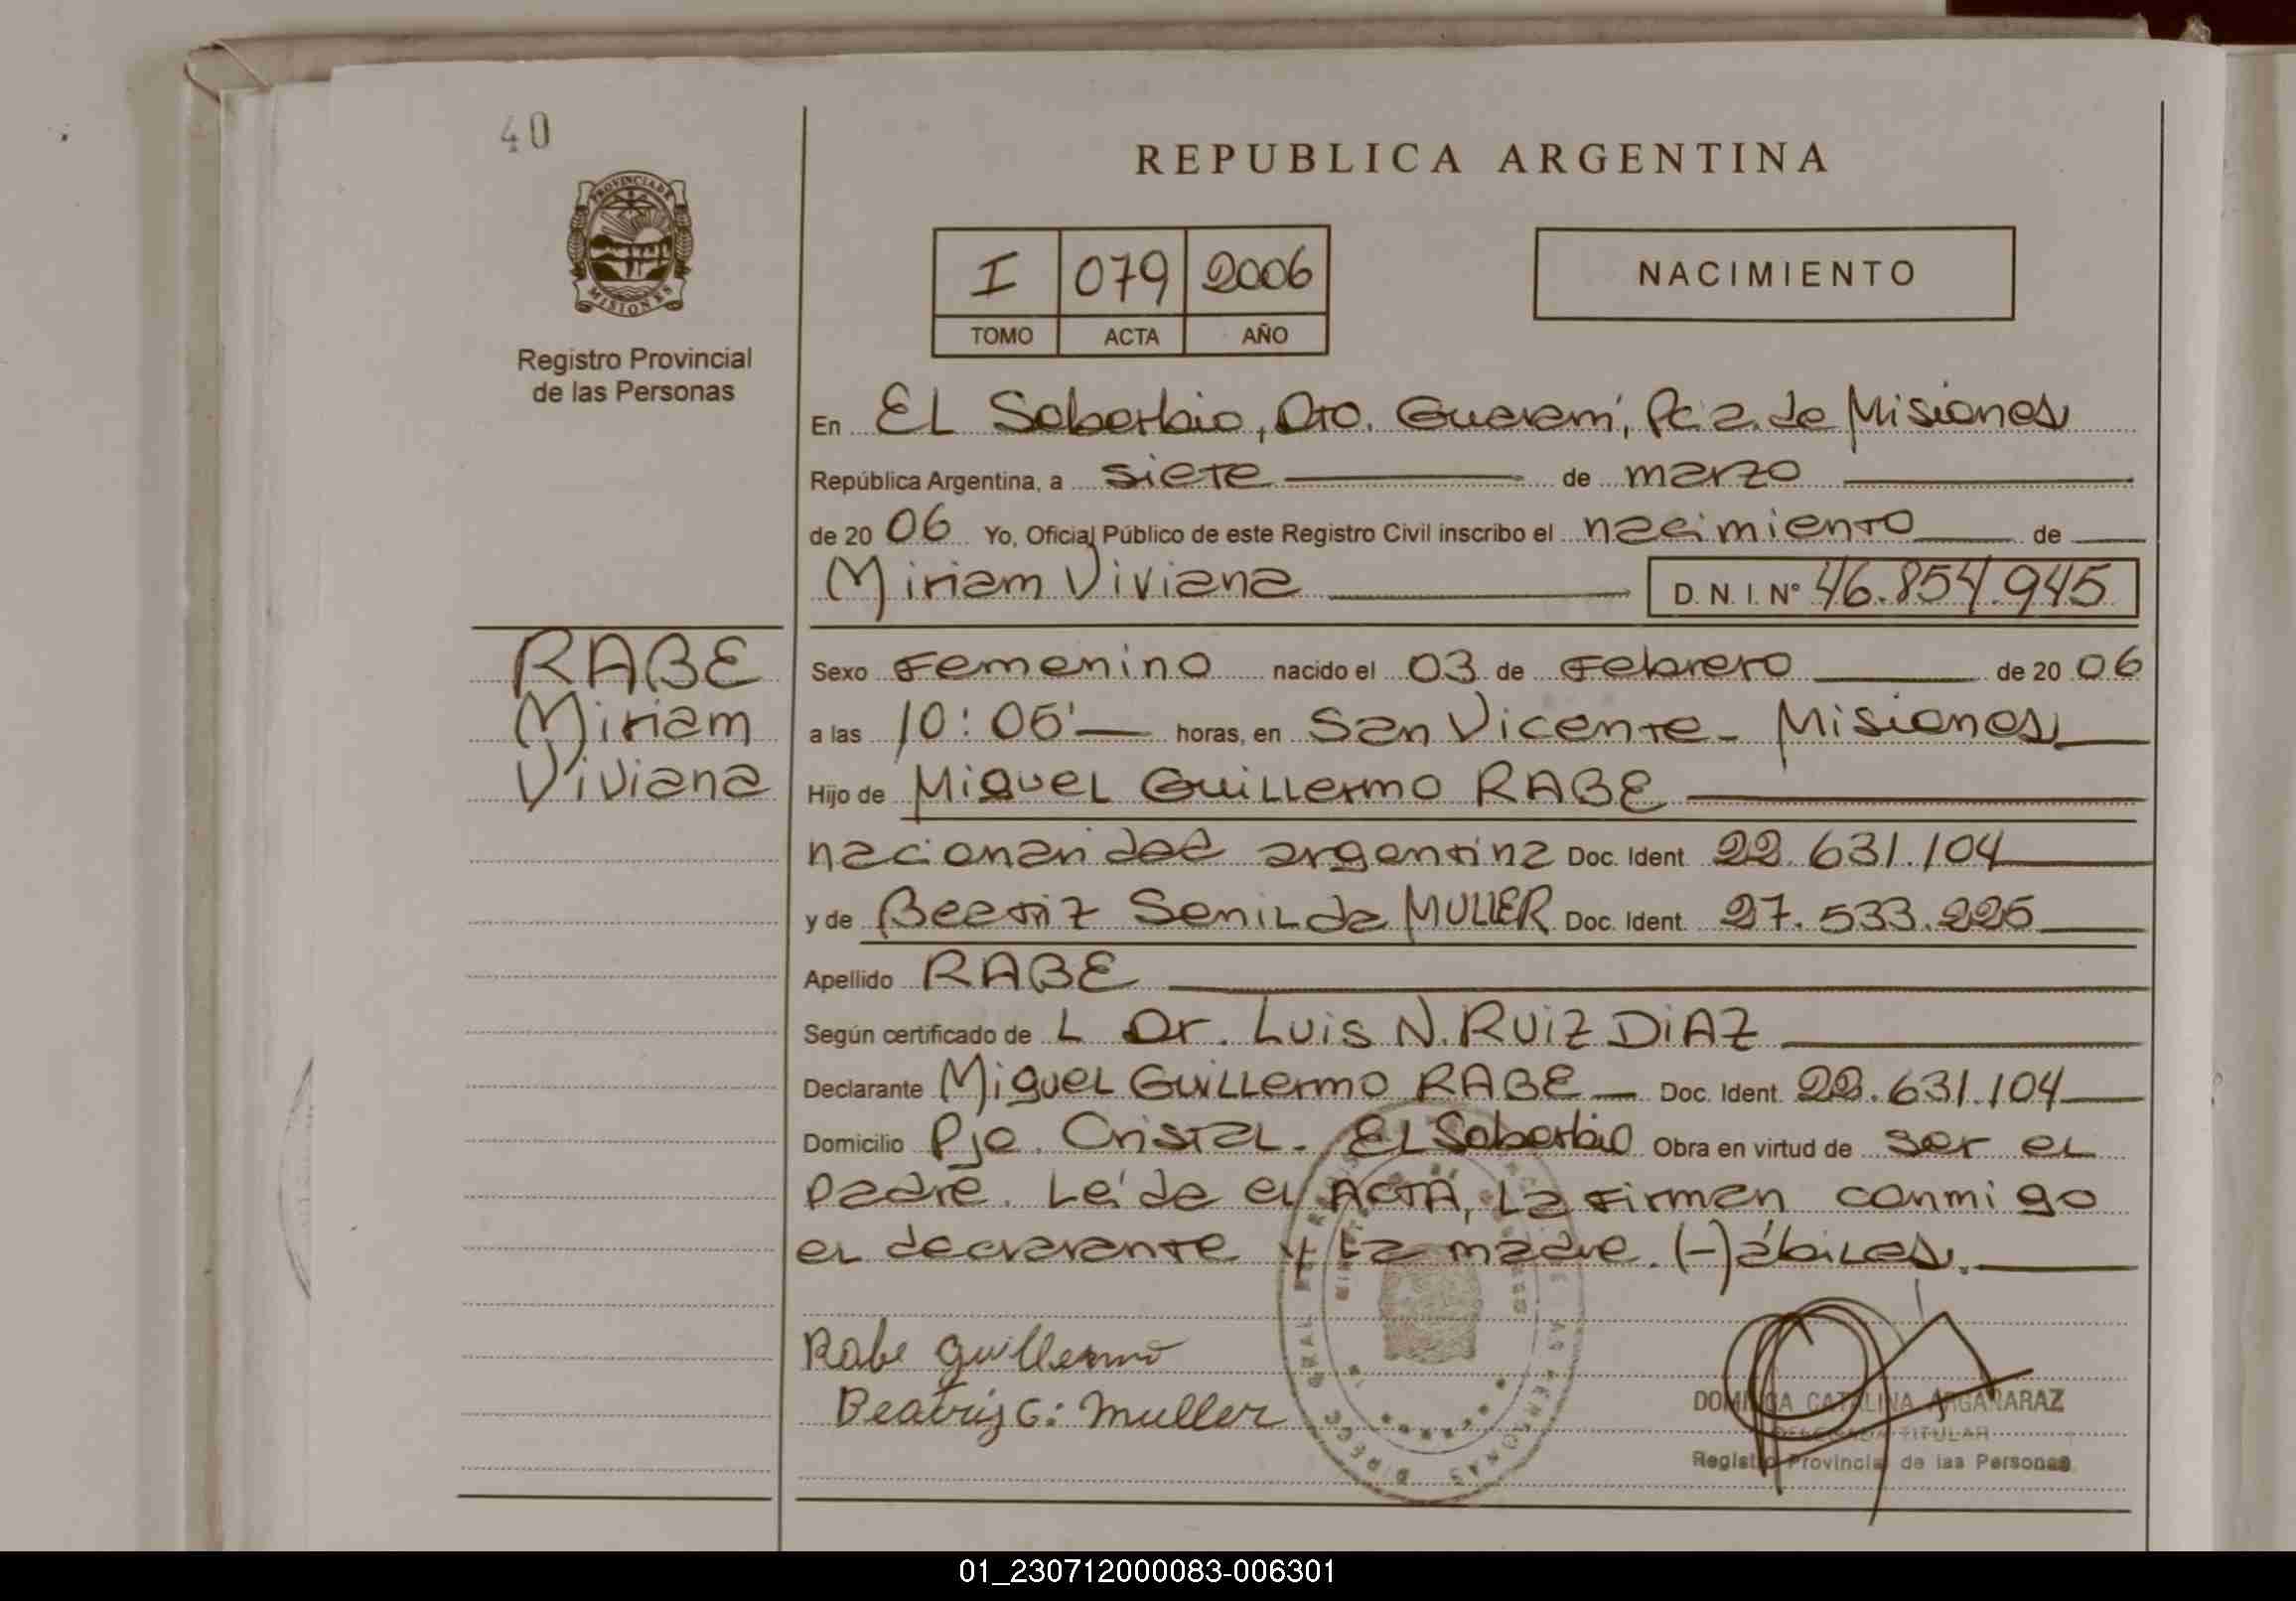 40
PROVINCIA DE
MISIONES
Registro Provincial
de las Personas
REPUBLICA ARGENTINA
I 079 2006
TOMO ACTA AÑO
NACIMIENTO
En EL Soberbio, Dto. Guaraní, Pcia. de Misiones
República Argentina, a siete de marzo
de 20 06 Yo, Oficial Público de este Registro Civil inscribo el nacimiento de
Miriam Viviana D. N. I. Nº 46.854.945
RABE
Miriam
Viviana
Sexo Femenino nacido el 03 de Febrero de 20 06
a las 10:05' horas, en San Vicente - Misiones
Hijo de Miguel Guillermo RABE
nacionalidad argentina Doc. Ident. 22.631.104
y de Beatriz Senilda MULLER Doc. Ident. 27.533.225
Apellido RABE
Según certificado de L Dr. Luis N. RUIZ DIAZ
Declarante Miguel Guillermo RABE Doc. Ident. 22.631.104
Domicilio Pje. Cristal. El Soberbio Obra en virtud de ser el
padre. Leída el ACTA, la firman conmigo
el declarante y la madre. (-) ábiles.
Rabe Guillermo
Beatriz C: Muller
DOMINGA CATALINA ARGAÑARAZ
DELEGADA TITULAR
Registro Provincial de las Personas
01_230712000083-006301